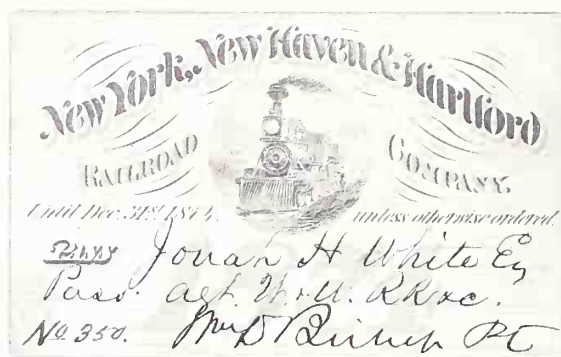 New York, New Haven & Hartford
RAILROAD COMPANY.
Until Dec. 31st 1874, unless otherwise ordered.
Pass Jonah H White Esq
Pass. agt. RR &c.
No 350. Wm D Bishop Pt